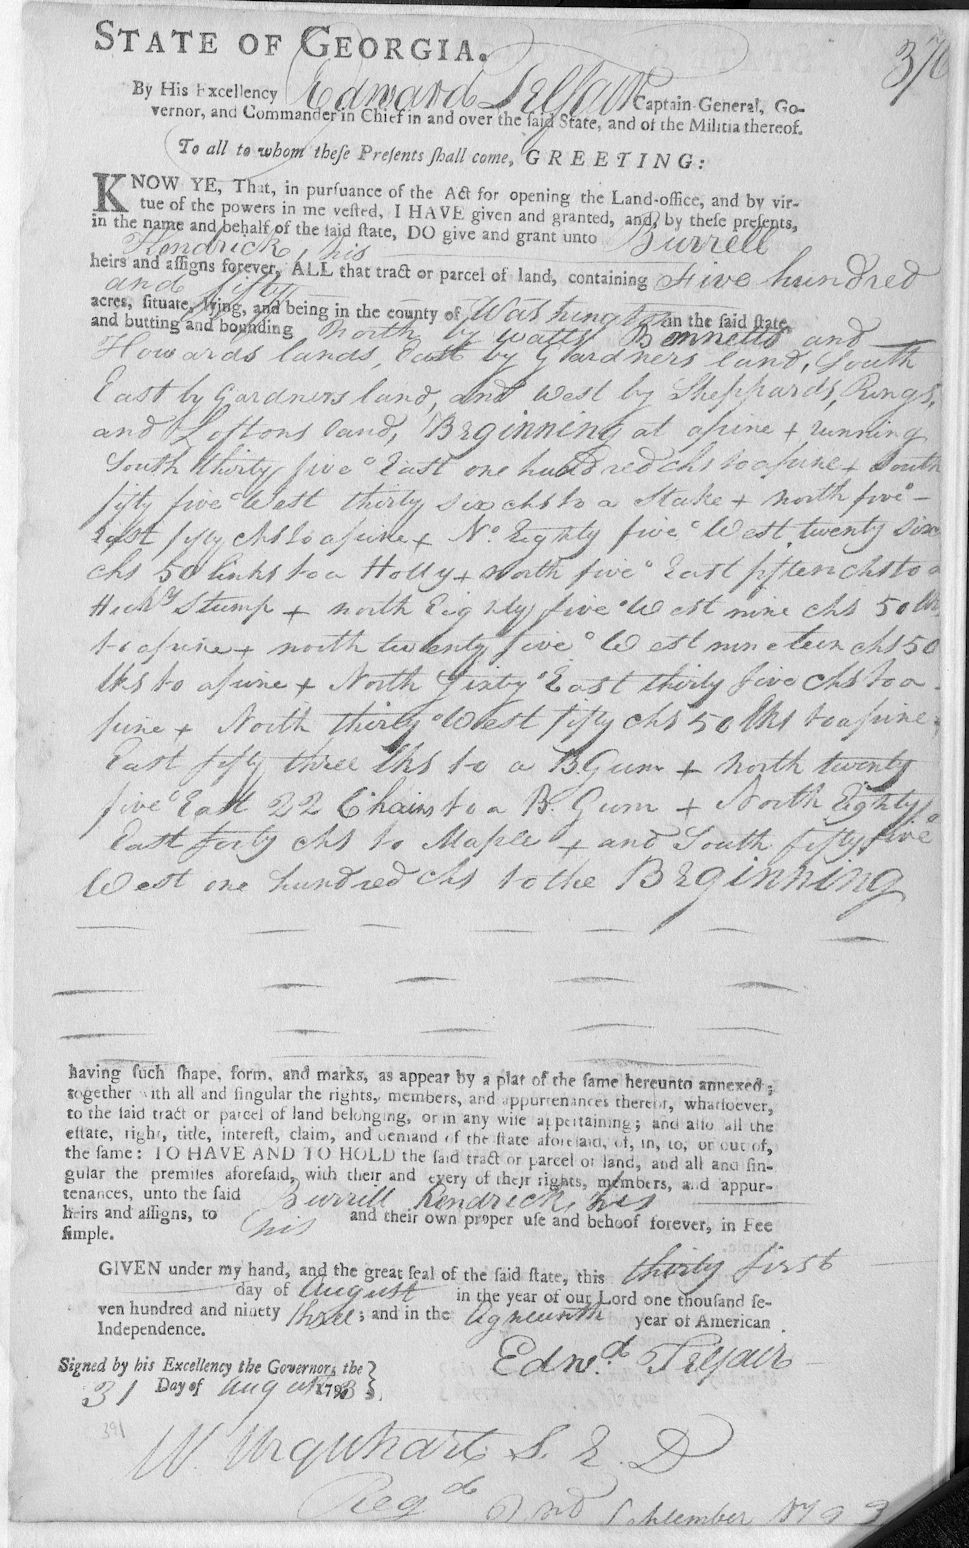 STATE OF GEORGIA.
376
By His Excellency Edward Telfair Captain-General, Go-
vernor, and Commander in Chief in and over the ſaid State, and of the Militia thereof.
To all to whom theſe Preſents ſhall come, GREETING:
KNOW YE, That, in purſuance of the Act for opening the Land-office, and by vir-
tue of the powers in me veſted, I HAVE given and granted, and, by theſe preſents,
in the name and behalf of the ſaid ſtate, DO give and grant unto Burrell
Kendrick, his
heirs and aſſigns forever, ALL that tract or parcel of land, containing Five hundred
and fifty
acres, ſituate, lying, and being in the county of Washington in the ſaid ſtate,
and butting and bounding North by watts Bennetts and
Howards lands, East by Gardners land, South
East by Gardners land, and West by Sheppards, Rings,
and Loftons land, Beginning at a pine + running
South thirty five° East one hundred chs to a pine + South
fifty five° West thirty six chs to a Stake + north five°
East fifty chs to a pine + No. Eighty five° West twenty six
chs 50 links to a Holly + north five° East fifteen chs to a
Hickry Stump + north Eighty five° West nine chs 50 lks
to a pine + north twenty five° West nineteen chs 50
lks to a pine + North Sixty° East thirty five chs to a
pine + North thirty° West fifty chs 50 lks to a pine
East fifty three lks to a B Gum + north twenty
five° East 22 Chains to a B. Gum + North Eighty°
East forty chs to Maple + and South fifty five°
West one hundred chs to the Beginning
having ſuch ſhape, form, and marks, as appear by a plat of the ſame hereunto annexed;
together with all and ſingular the rights, members, and appurtenances thereof, whatſoever,
to the ſaid tract or parcel of land belonging, or in any wiſe appertaining; and alſo all the
eſtate, right, title, intereſt, claim, and demand of the ſtate aforeſaid, of, in, to, or out of,
the ſame: TO HAVE AND TO HOLD the ſaid tract or parcel of land, and all and ſin-
gular the premiſes aforeſaid, with their and every of their rights, members, and appur-
tenances, unto the ſaid Burrell Kendrick, his
heirs and aſſigns, to his and their own proper uſe and behoof forever, in Fee
ſimple.
GIVEN under my hand, and the great ſeal of the ſaid ſtate, this thirty first
day of August in the year of our Lord one thouſand ſe-
ven hundred and ninety three; and in the year of American
Independence.
Edwd. Telfair
Signed by his Excellency the Governor, the
31 Day of August 1793
391
W. Urquhart S. E. D
Regd 2nd September 1793